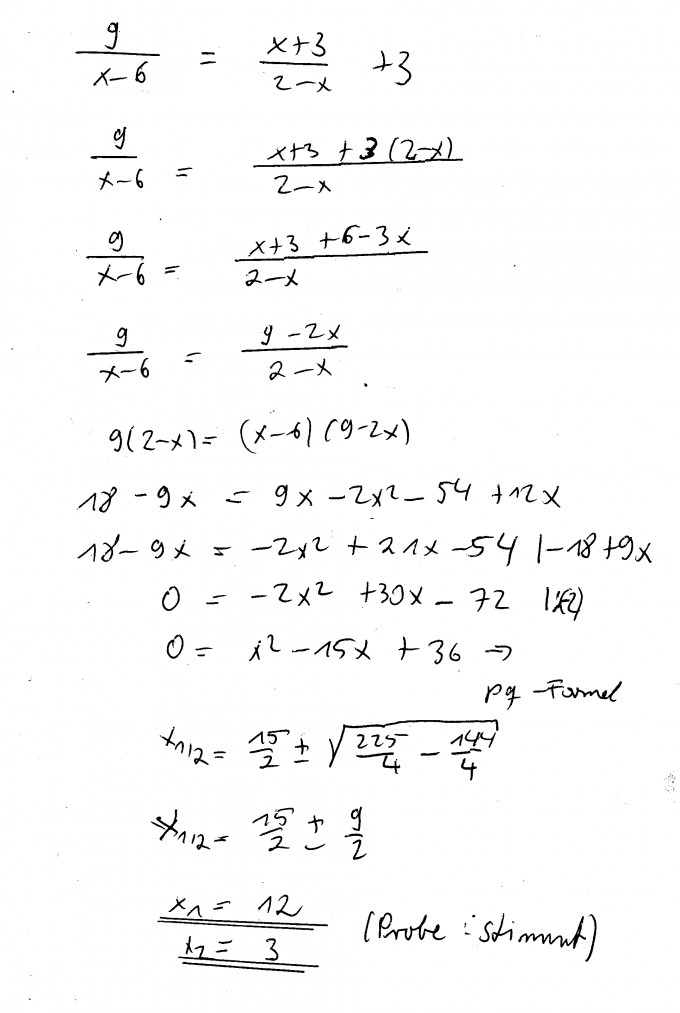 9/(x-6) = (x+3)/(2-x) +3
9/(x-6) = (x+3 +3(2-x))/(2-x)
9/(x-6) = (x+3 +6-3x)/(2-x)
9/(x-6) = (9-2x)/(2-x)
9(2-x) = (x-6)(9-2x)
18 - 9x = 9x - 2x² - 54 + 12x
18 - 9x = -2x² + 21x - 54 |-18+9x
0 = -2x² +30x - 72 |:(-2)
0 = x² - 15x + 36 ⇒
pq-Formel
x1/2 = 15/2 ± √(225/4 - 144/4)
x1/2 = 15/2 ± 9/2
x1 = 12
x2 = 3 (Probe : stimmt)